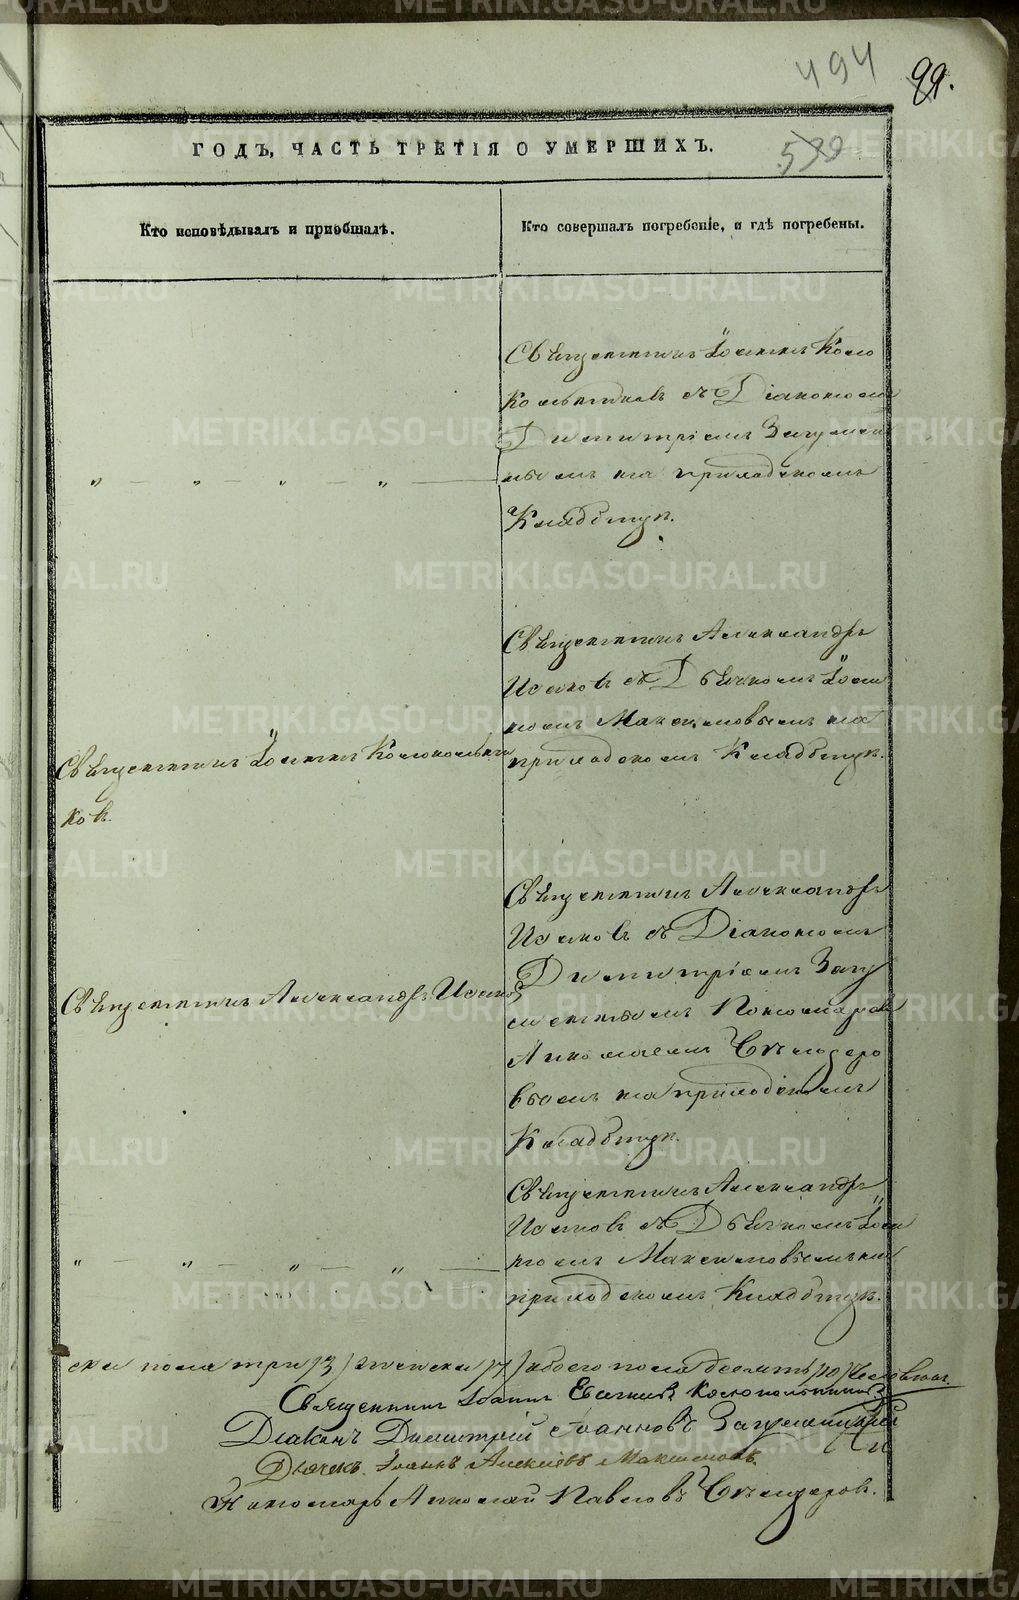 494
99.
599
ГОДЪ, ЧАСТЬ ТРЕТІЯ О УМЕРШИХЪ.
Кто исповѣдывалъ и пріобщалъ.
Кто совершалъ погребеніе, и гдѣ погребены.
Священникъ Іоаннъ Коло
кольниковъ съ Діакономъ
Димитріемъ Загумен
нымъ на приходскомъ
Кладбищѣ.
" — " — " — " —
Священникъ Александръ
Исаковъ съ Дьячкомъ Іоан
номъ Максимовымъ на
приходскомъ Кладбищѣ.
Священникъ Іоаннъ Колокольни
ковъ.
Священникъ Александръ
Исаковъ съ Діакономъ
Димитріемъ Загу
меннымъ Пономаремъ
Священникъ Александръ Исаковъ
вымъ на приходскомъ
Кладбищѣ.
Священникъ Александръ
Исаковъ съ Дьячкомъ Іоан
номъ Максимовымъ на
приходскомъ Кладбищѣ.
" — " — " — " —
ска пола три /3/ женска /7/ обоего пола десять /10/ человѣкъ.
Священникъ Іоаннъ Евгеніевъ Колокольниковъ
Діаконъ Димитрій Іоанновъ Загуменныхъ
Дьячекъ Іоаннъ Алексіевъ Максимовъ
Пономарь Николай Павловъ
METRIKI.GASO-URAL.RU